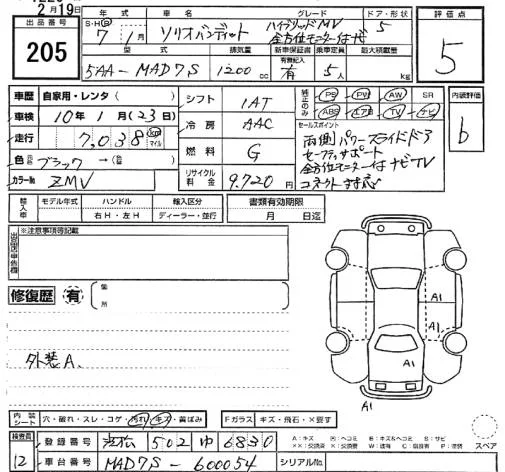 2月19日
出品番号 205
年式 車名 グレード ドア・形状 評価点
S・H・R 7年 1月 ソリオバンディット ハイブリッドMV 全方位モニター付ナビ 5 5
型式 排気量 新車保証書 乗車定員 最大積載量
5AA-MAD7S 1200cc 有無記入 有 5人 kg
車歴 自家用・レンタ( ) シフト 1AT 純正のみ PS PW AW SR 内装評価
車検 10年1月(23日) ABS エアB TV ナビ b
走行 7,038 km マイル 冷房 AAC セールスポイント
両側パワースライドドア
色 ブラック → ( ) 燃料 G セーフティサポート
全方位モニター付ナビTV
カラーNo ZMV リサイクル料金 9.720円 コネクト対応
輸入車 モデル年式 ハンドル 右H・左H 輸入区分 ディーラー・並行 書類有効期限 月 日迄
出品店申告欄 ※注意事項等記載
修復歴 有 箇所
A1
A1
A1
外装A、
内装シート 穴・破れ・スレ・コゲ・汚れ・キズ・黄ばみ Fガラス キズ・飛石・×要す
検査員 12 登録番号 浜松 502 ゆ 6830
車台番号 MAD7S-600054 シリアルNo.
A:キズ U:ヘコミ B:キズ&ヘコミ S:サビ
スペア